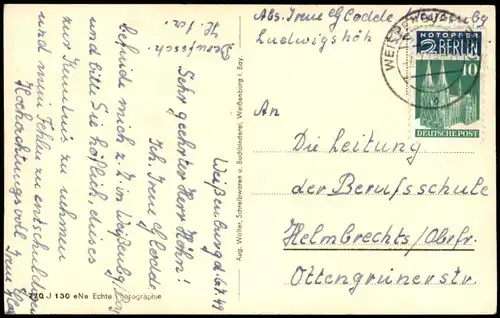 Abs. Irene Weißenburg
Ludwigshöh
NOTOPFER
2 BERLIN
10
DEUTSCHE POST
An
Die Leitung
der Berufsschule
Helmbrechts/Obrfr.
Ottengrünerstr.
Berufssch.
Weißenburg d. 6.7.49
Sehr geehrter Herr Höhn!
Ich, Irene
befinde mich z. Z. in Weißenbg/Bay
und bitte Sie höflich, dieses
zur Kenntnis zu nehmen
und mein Fehlen zu entschuldigen
Hochachtungsvoll Irene
Aug. Wolter, Schreibwaren u. Buchbinderei, Weißenburg i. Bay.
770 J 130 eNe Echte Photographie